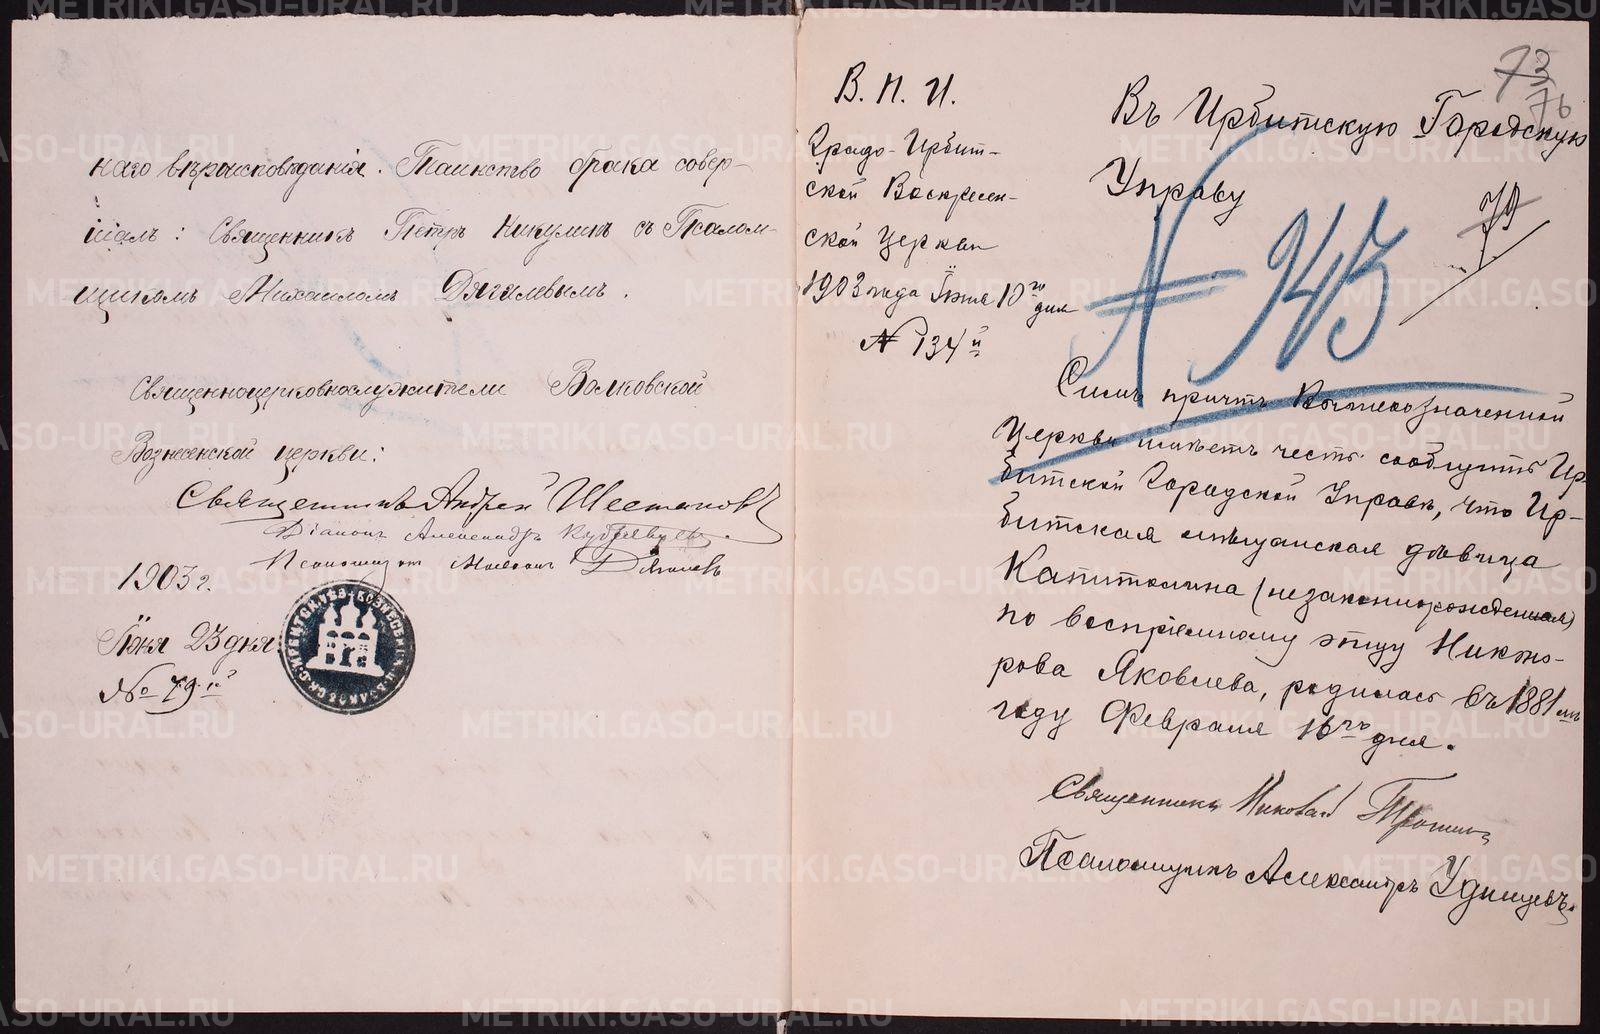 наго вѣроисповѣданія. Таинство брака совер-
шалъ: Священникъ Петръ Никулинъ съ Псалом-
щикомъ Михаиломъ Дягилевымъ.
Священноцерковнослужители Волковской
Вознесенской церкви:
Священникъ Андрей Шестаковъ
Діаконъ Александръ Кудрявцев.
Псаломщикъ Михаилъ Дягилевъ
1903 г.
Іюня 23 дня
№ 79-й
73
76
В. П. И.
Градо-Ирбит-
ской Воскресен-
ской Церкви
1903 года Іюня 10го дня
№ 134й
Въ Ирбитскую Городскую
Управу
79
№ 943
Симъ причтъ Вышеозначенной
Церкви имѣетъ честь сообщить Ир-
битской Городской Управѣ, что Ир-
битская мѣщанская дѣвица
Капитолина (незаконнорожденная)
по воспріемному отцу Никано-
рова Яковлева, родилась въ 1881мъ
году Февраля 16го дня.
Священникъ Николай Тронинъ
Псаломщикъ Александръ Удинцевъ.
METRIKI.GASO-URAL.RU